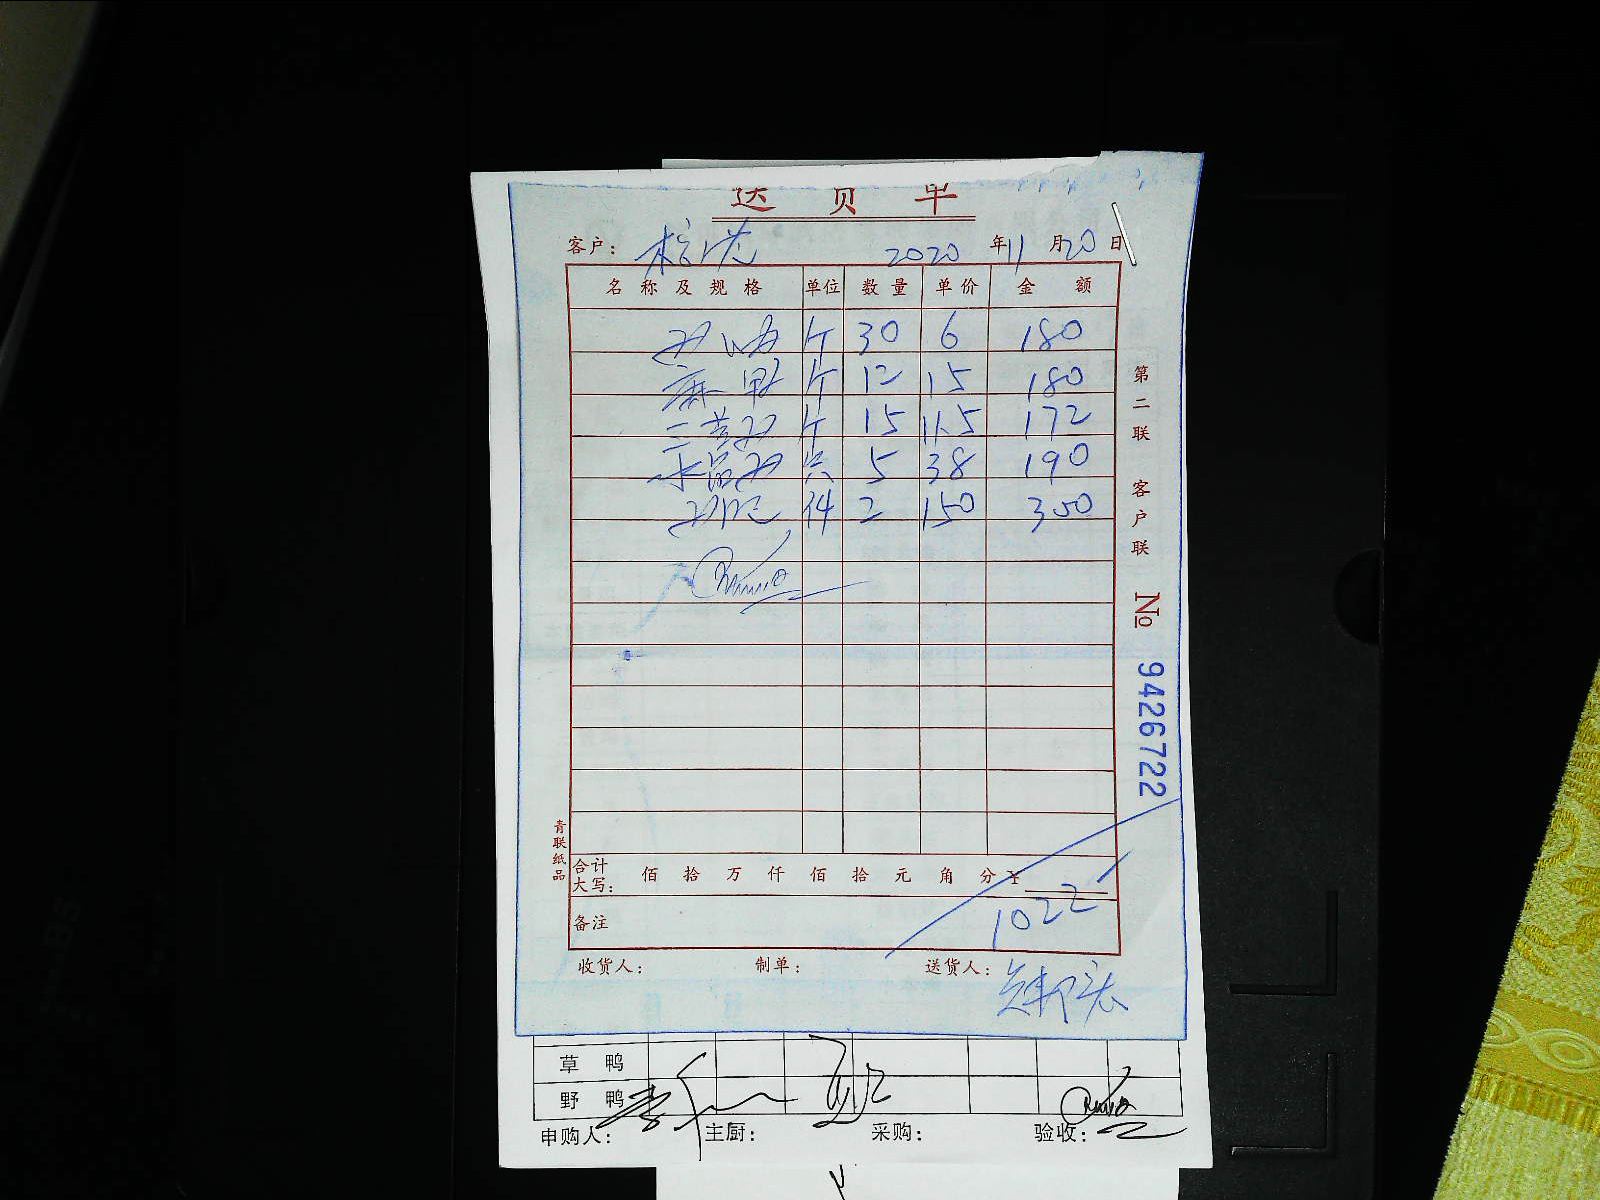 送货单
客户： 2020 年 11 月 20 日
名称及规格 单位 数量 单价 金额
个 30 6 180
麻鸭 个 12 15 180
三黄鸡 个 15 11.5 172
水晶鸡 只 5 38 190
件 2 150 300
第二联 客户联 № 9426722
青联纸品
合计大写： 佰 拾 万 仟 佰 拾 元 角 分 ¥
1022
备注
收货人： 制单： 送货人：
草鸭
野鸭
申购人： 主厨： 采购： 验收：